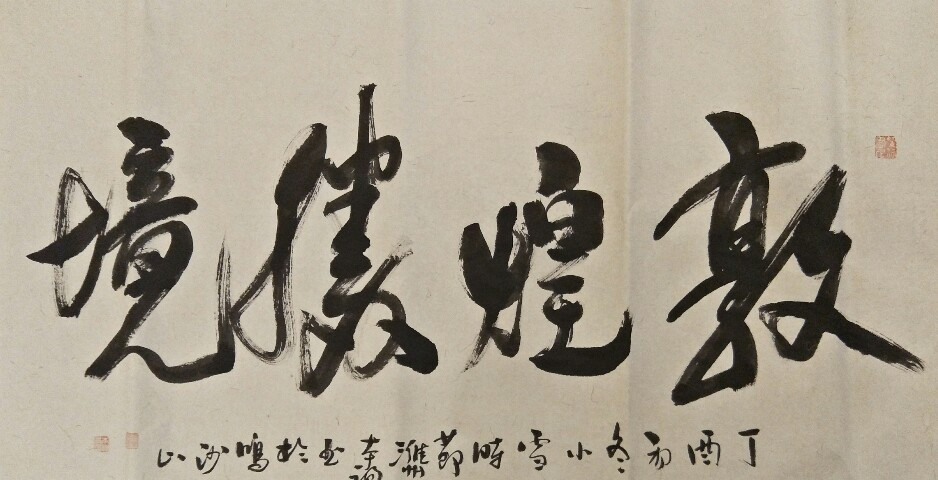 敦煌勝境
丁酉初冬小雪時節濰州書於鳴沙山